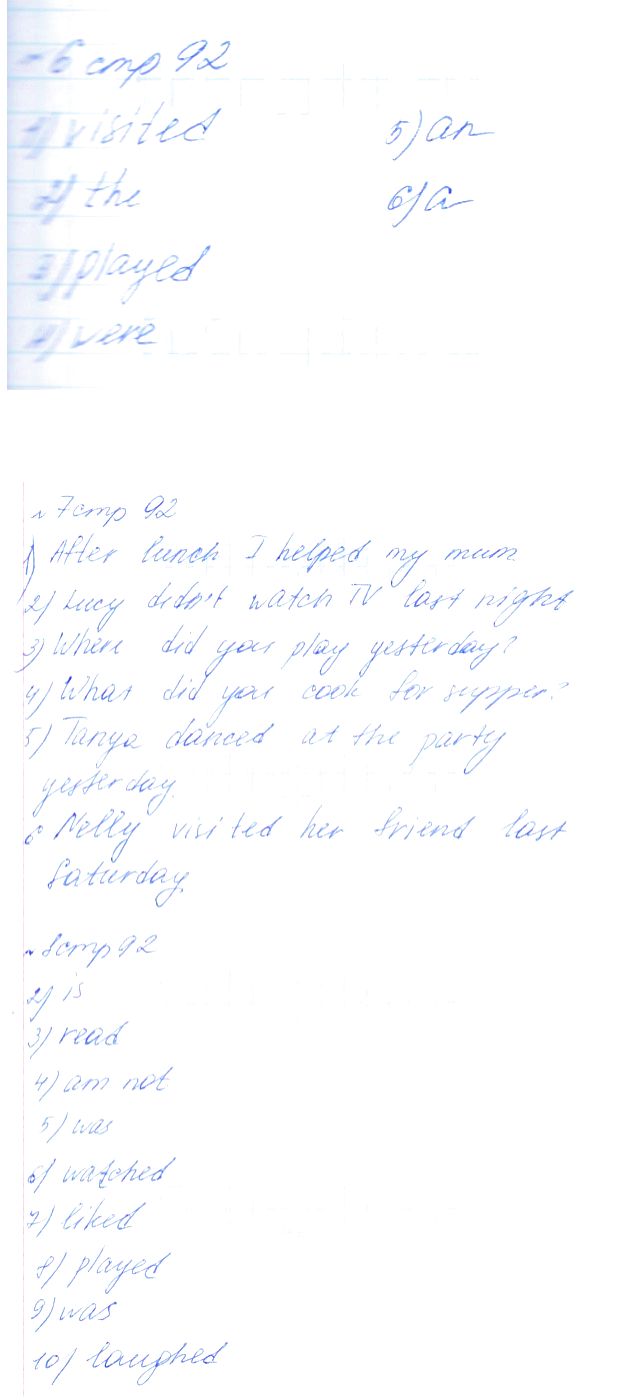 ~6 стр 92
1) visited
2) the
3) played
4) were
5) an
6) a
~7 стр 92
1) After lunch I helped my mum
2) Lucy didn't watch TV last night
3) When did you play yesterday?
4) What did you cook for supper?
5) Tanya danced at the party
yesterday.
6 Nelly visited her friend last
Saturday.
~8 стр 92
2) is
3) read
4) am not
5) was
6) watched
7) liked
8) played
9) was
10) laughed